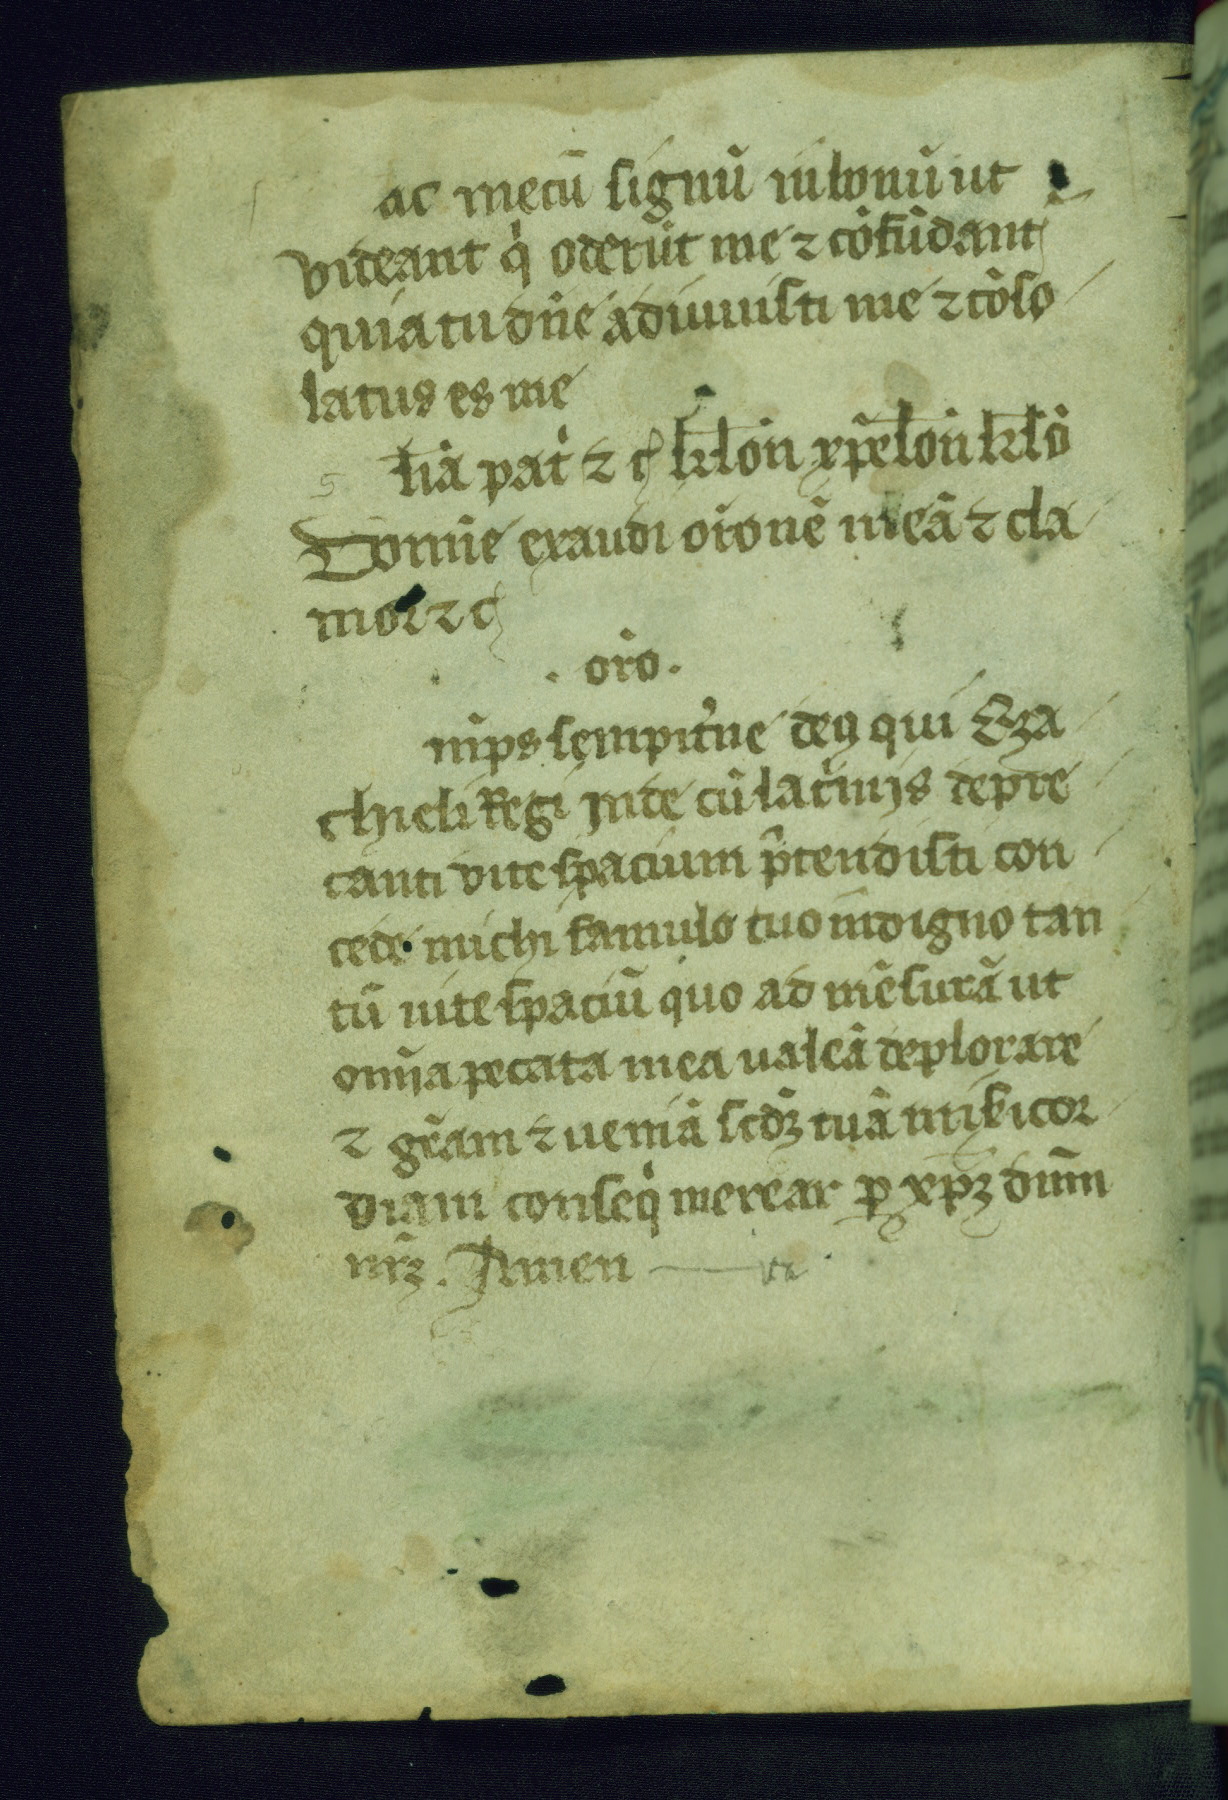 ac mecū signū in bonū ut
videant q̇ oderūt me ⁊ cōfūdant᷒
quia tu dn̄e adiuuisti me ⁊ cōso
latus es me
lıā pat̉ ⁊ c̃ kɼl̄on xp̄el̄on kɼl̄o
Domīe exaudi or̄onē meā ⁊ cla
mor ⁊ c̃
. or̄o.
nīps sempit̉ne deꝯ qui Eza
chieli Regi jude cū lac̉mijs depre
canti vite spacium p̄tendisti con
cede michi famulo tuo indigno tan
tū uite spaciū quo ad mēsurā ut
om̄ia pecata mea ualeā deplorare
⁊ gr̄am ⁊ ueniā scd̄ꝫ tuā misericor
diam conseq̇ merear ꝑ xp̄ꝫ dn̄m
nr̄ꝫ. Amen